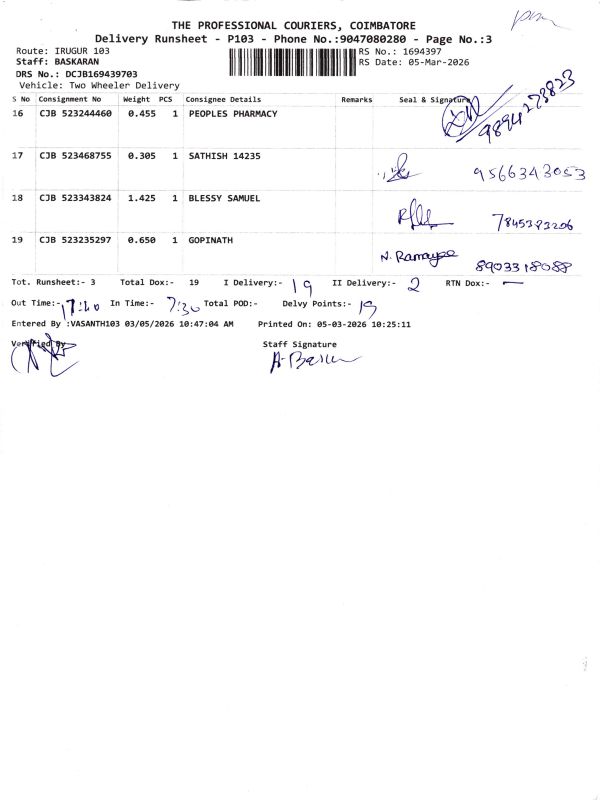 THE PROFESSIONAL COURIERS, COIMBATORE
Delivery Runsheet - P103 - Phone No.:9047080280 - Page No.:3
Route: IRUGUR 103 RS No.: 1694397
Staff: BASKARAN RS Date: 05-Mar-2026
DRS No.: DCJB169439703
Vehicle: Two Wheeler Delivery
S No Consignment No Weight PCS Consignee Details Remarks Seal & Signature
16 CJB 523244460 0.455 1 PEOPLES PHARMACY 9894273823
17 CJB 523468755 0.305 1 SATHISH 14235 9566343053
18 CJB 523343824 1.425 1 BLESSY SAMUEL 7845383206
19 CJB 523235297 0.650 1 GOPINATH N. Ramayee 8903318088
Tot. Runsheet:- 3 Total Dox:- 19 I Delivery:- 19 II Delivery:- 2 RTN Dox:- —
Out Time:- In Time:- 7:30 Total POD:- Delvy Points:- 19
Entered By :VASANTH103 03/05/2026 10:47:04 AM Printed On: 05-03-2026 10:25:11
Verified By Staff Signature